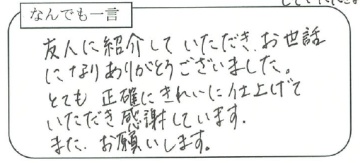 なんでも一言
友人に紹介していただき、お世話
になりありがとうございました。
とても正確にきれいに仕上げて
いただき感謝しています。
また、お願いします。